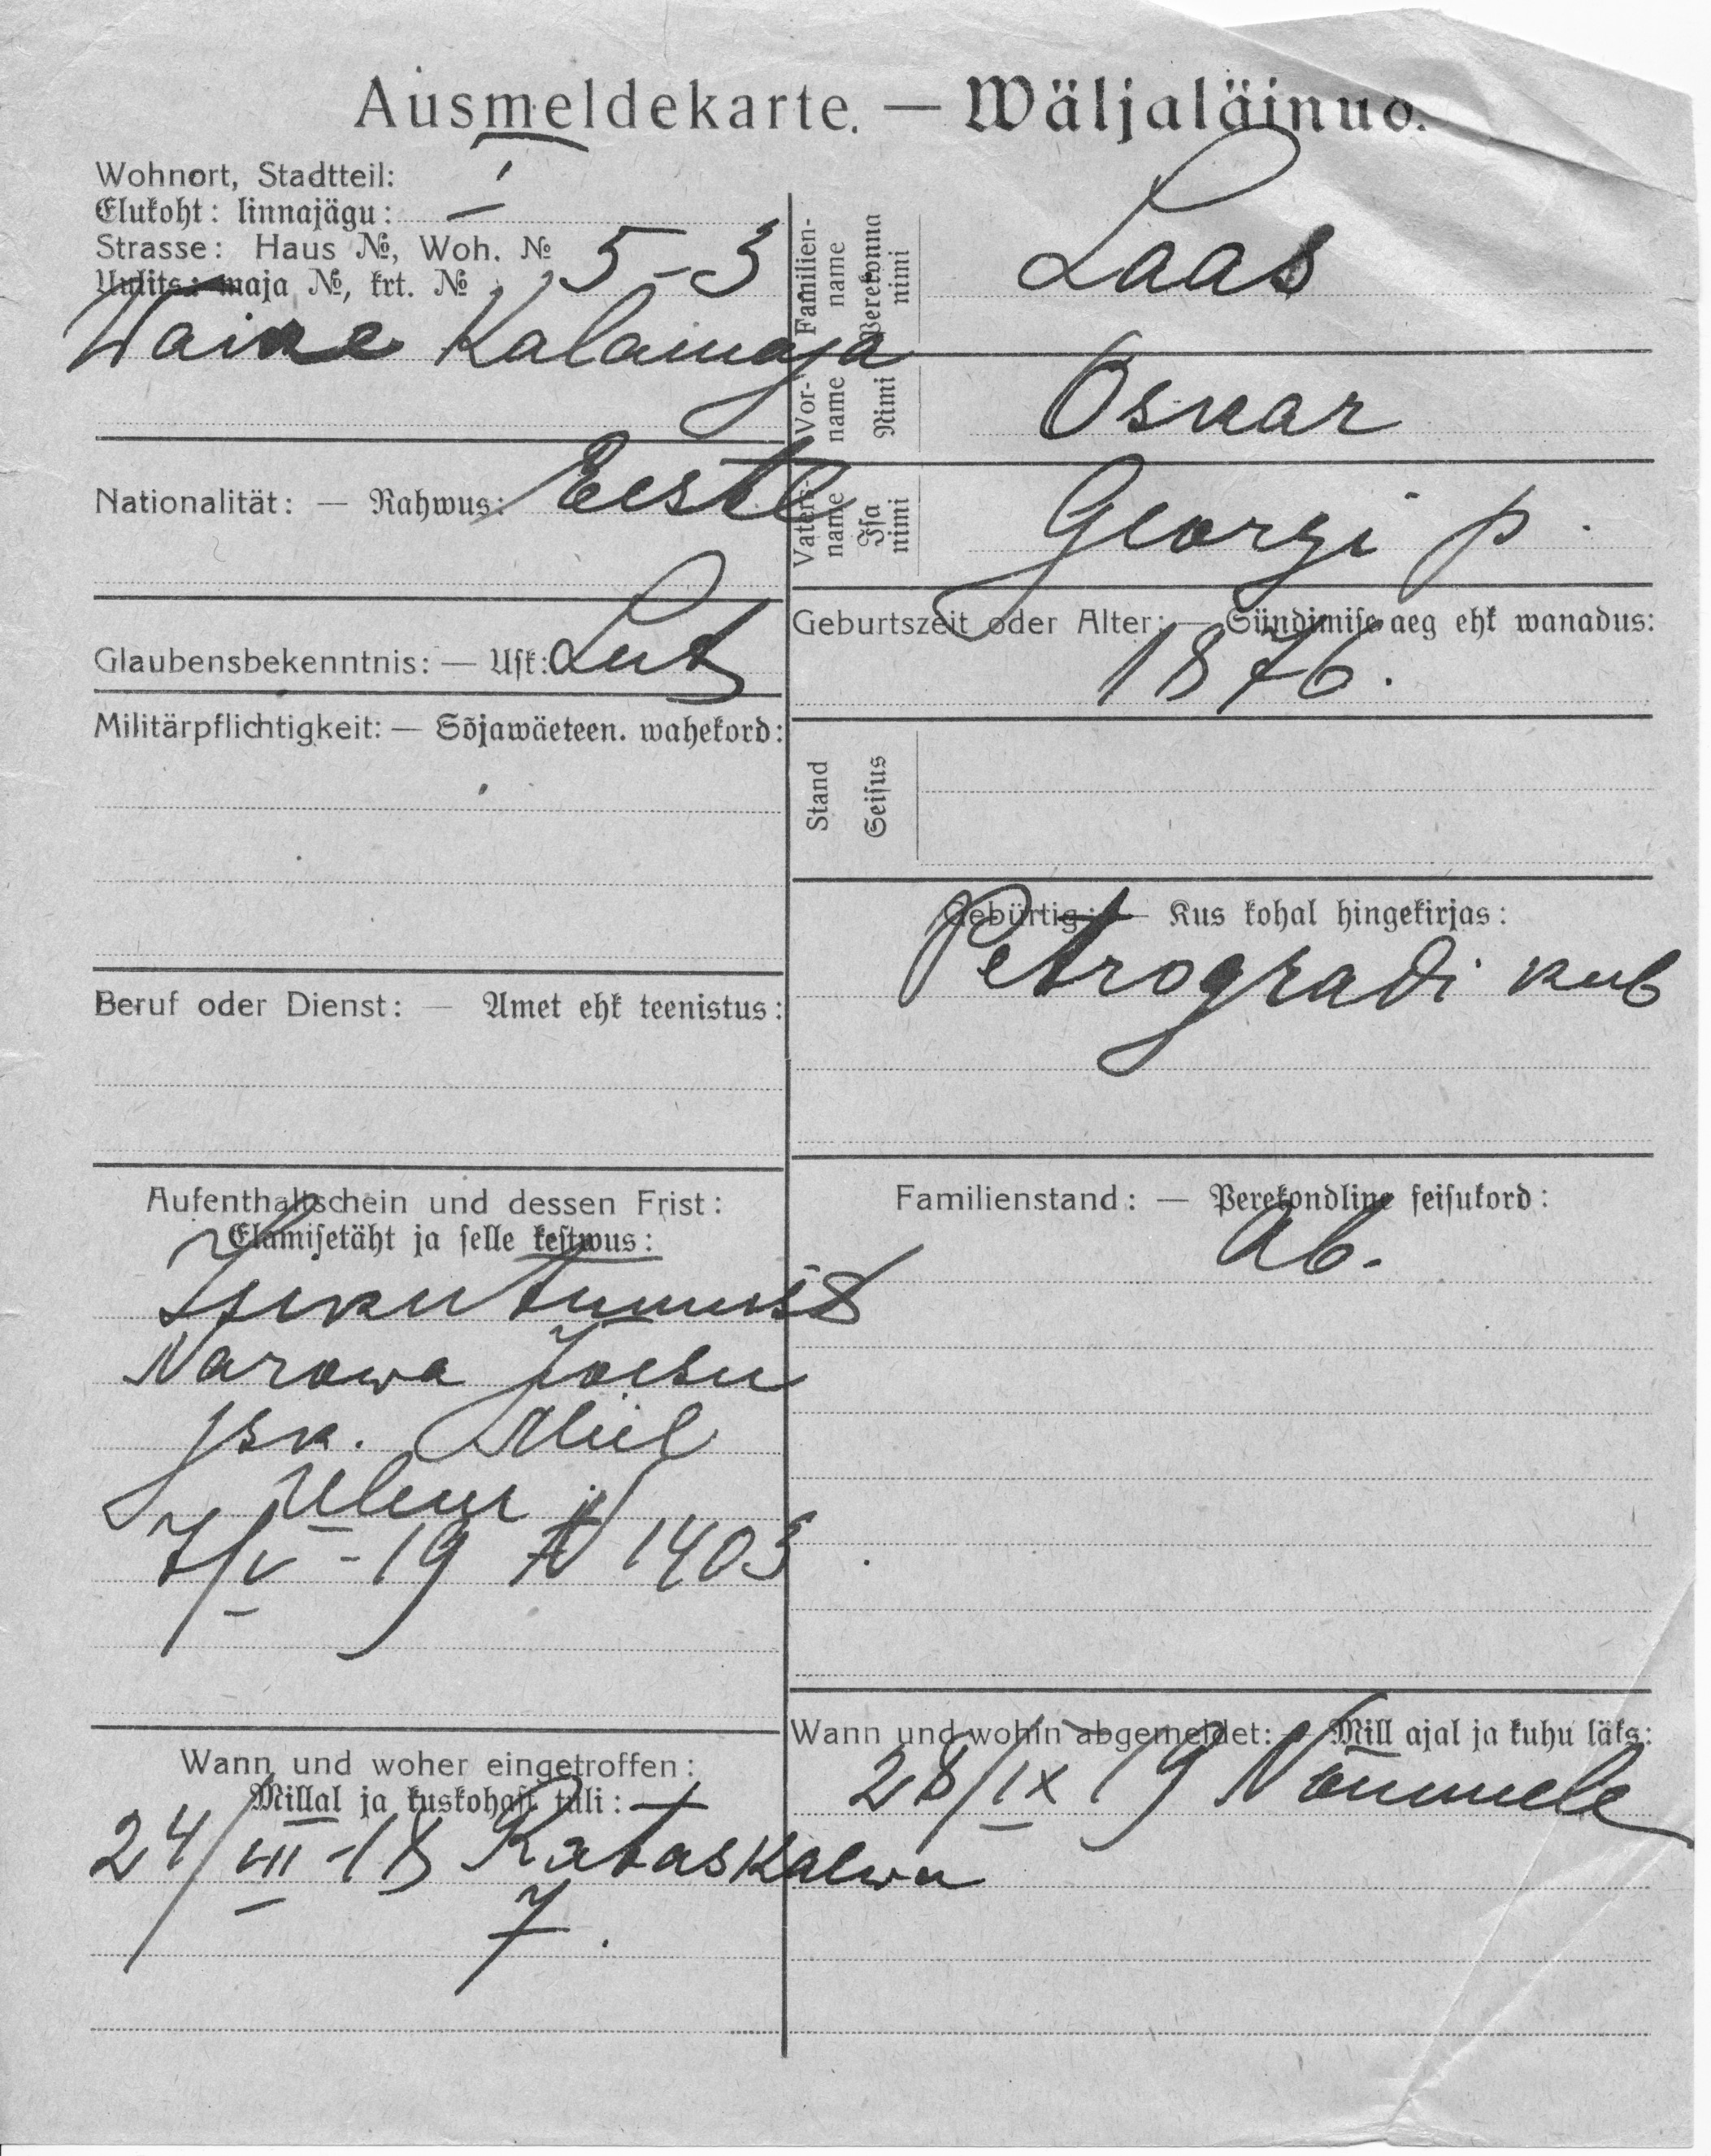 Ausmeldekarte. — Wäljaläinud.
Wohnort, Stadtteil:
Elukoht: linnajägu: I
Strasse: Haus №, Woh. №
Uulits: maja №, krt. № 5-3
Waike Kalamaja
Nationalität: — Rahwus: Eestl
Glaubensbekenntnis: — Usk: Lut
Militärpflichtigkeit: — Sõjawäeteen. wahekord:
Beruf oder Dienst: — Amet ehk teenistus:
Aufenthaltschein und dessen Frist:
Elamisetäht ja selle kestwus:
Isikutunnist
Narowa Joesu
jsk. Miil
Ulem
7/V - 19 № 1403
Wann und woher eingetroffen:
Millal ja kuskohast tuli:
24/VII -18 Rataskaewu
7.
Familien-name Perekonna nimi
Laas
Vor-name Nimi
Oskar
Vaters-name Isa nimi
Georgi p.
Geburtszeit oder Alter: — Sündimise aeg ehk wanadus:
1876.
Stand Seisus
Gebürtig: — Kus kohal hingekirjas:
Petrogradi kub
Familienstand: — Perekondline seisukord:
Ab.
Wann und wohin abgemeldet: — Mill ajal ja kuhu läks:
28/IX 19 Nõmmele